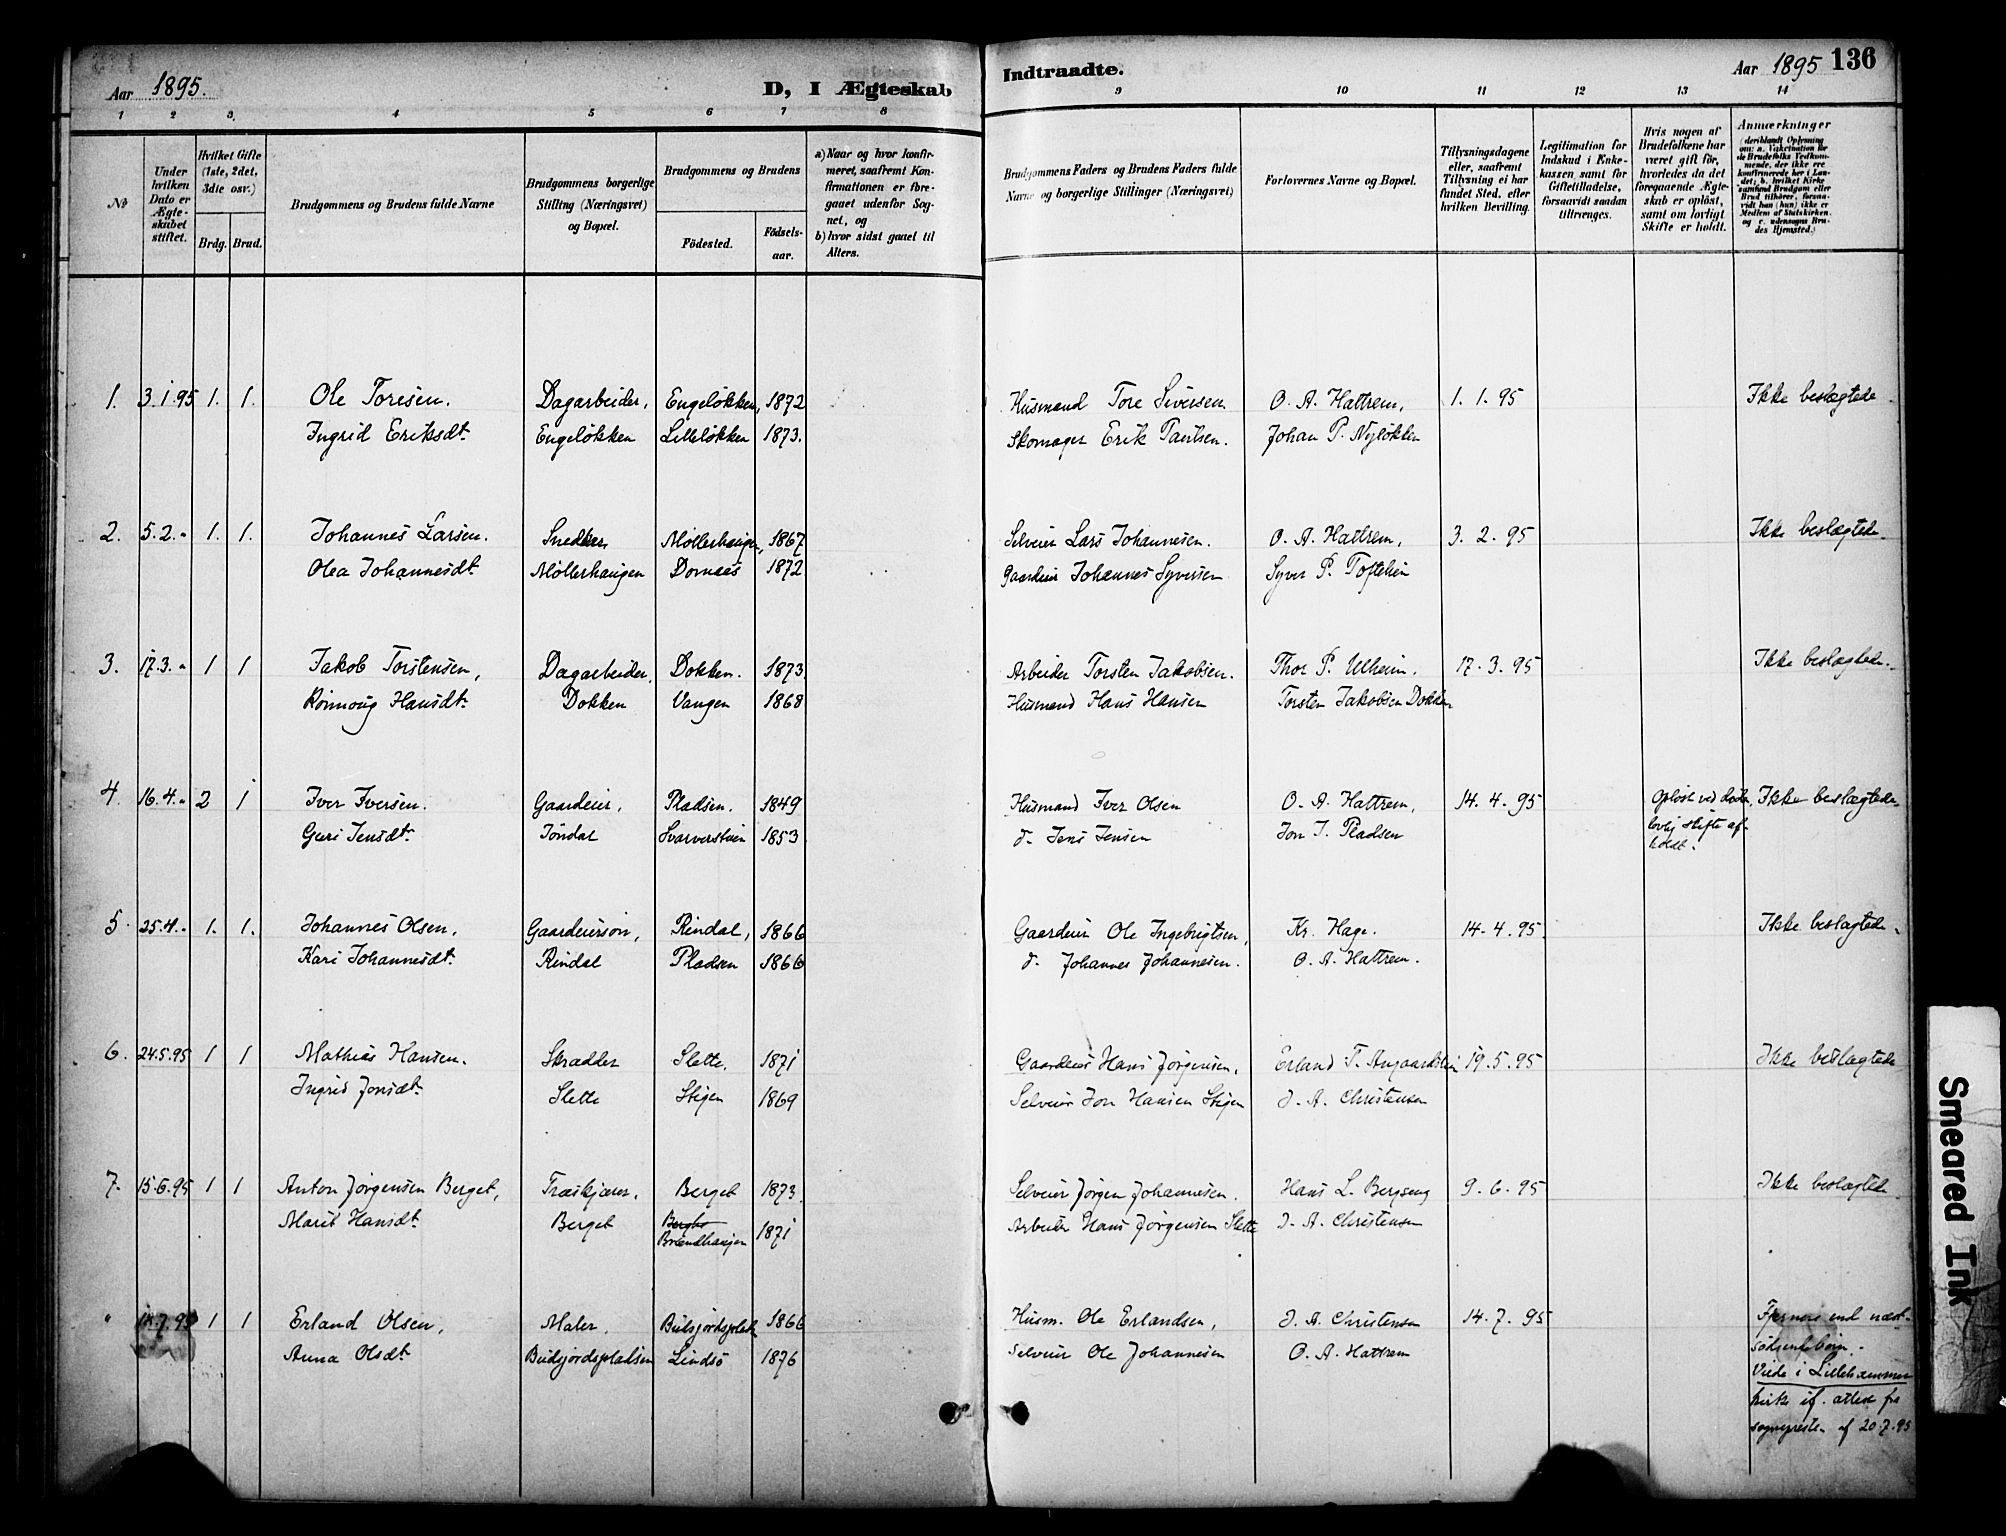 Aar 1895.
D, I Ægteskab
Indtraadte.
Aar 1895
136
1 2 3. 4 5 6 7 8
9 10 11 12 13 14
No
Under hvilken Dato er Ægteskabet stiftet.
Hvilket Gifte (1ste, 2det, 3die osv.)
Brdg. Brud.
Brudgommens og Brudens fulde Navne
Brudgommens borgerlige Stilling (Næringsvei) og Bopæl.
Brudgommens og Brudens
Födested.
Födselsaar.
a) Naar og hvor konfirmeret, saafremt Konfirmationen er foregaaet udenfor Sognet, og
b) hvor sidst gaaet til Alters.
Brudgommens Faders og Brudens Faders fulde Navne og borgerlige Stillinger (Næringsvei)
Forlovernes Navne og Bopæl.
Tillysningsdagene eller, saafremt Tillysning ei har fundet Sted, efter hvilken Bevilling.
Legitimation for Indskud i Enkekassen, samt for Giftetilladelse, forsaavidt saadan tiltrænges.
Hvis nogen af Brudefolkene har været gift för, hvorledes da det foregaaende Ægteskab er oplöst, samt om lovligt Skifte er holdt.
Anmærkninger
(deriblandt Oplysning om: a. Vakcination for de Brudefolks Vedkommende, der ikke ere konfirmerede her i Landet; b. hvilket Kirkesamfund Brudgom eller Brud tilhörer, forsaavidt han (hun) ikke er Medlem af Statskirken, og c. udensogns Brudes Hjemsted.)
1. 3.1.95 1. 1. Ole Toresen. Dagarbeider, Engeløkken, 1872 Husmand Tore Siversen O. A. Hattrem, 1. 1. 95 Ikke beslægtede
Ingrid Eriksdt. Engeløkken Lilleløkken 1873. Skomager Erik Paulsen. Johan P. Nyløkken
2. 5.2.- 1. 1. Johannes Larsen. Snedker Møllerhaugen, 1867 Selveier Lars Johannesen. O. A. Hattrem, 3. 2. 95 Ikke beslægtede.
Olea Johannesdt Møllerhaugen Dornæs 1872 Gaardeier Johannes Syversen Syver P. Toftelien
3. 17.3.- 1 1 Jakob Torstensen, Dagarbeider, Dokken. 1873 Arbeider Torsten Jakobsen. Thor P. Ulheim. 17. 3. 95 Ikke beslægtede.
Rønnoug Hansdt. Dokken Vangen 1868 Husmand Hans Hansen Torsten Jakobsen Dokken
4. 16.4.- 2 1 Iver Iversen. Gaardeier, Pladsen. 1849 Husmand Iver Olsen O. A. Hattrem, 14. 4. 95 Opløst ved døden Ikke beslægtede
lovlig skifte af-
holdt.
Guri Jensdt. Jøndal Svarverstuen 1853 d. Jens Jensen Jon J. Pladsen
5. 25.4.- 1. 1. Johannes Olsen, Gaardeiersøn, Rindal, 1866 Gaardeier Ole Ingebrigtsen, Kr. Hage. 14. 4. 95. Ikke beslægtede.
Kari Johannesdt. Rindal Pladsen 1866 d. Johannes Johannesen. O. A. Hattrem.
6. 24.5.95 1 1 Mathias Hansen. Skrædder Slette, 1871 Gaardeier Hans Jørgensen, Erland T. 19. 5. 95 Ikke beslægtede
Ingrid Jonsdt. Slette Stigen 1869 Selveier Jon Hansen Stigen J. A. Christensen
7. 15.6.95 1 1 Anton Jørgensen Berget, Træskjærer, Berget 1873 Selveier Jørgen Johannesen. Hans L. Bergseng 9. 6. 95 Ikke beslægtede
Marit Hansdt. Berget Brændhaugen 1871 Arbeider Hans Jørgensen Slette J. A. Christensen
" 7.95 1 1 Erland Olsen, Maler, 1866 Husm. Ole Erlandsen, J. A. Christensen 14. 7. 95 Fjernere end næst-
Anna Olsdt Lindsø 1876 Selveier Ole Johannesen O. A. Hattrem
søskendebørn.
Viede i Lillehammer
kirke if. attest fra
sognepresten af 20.7.95
Smeared Ink